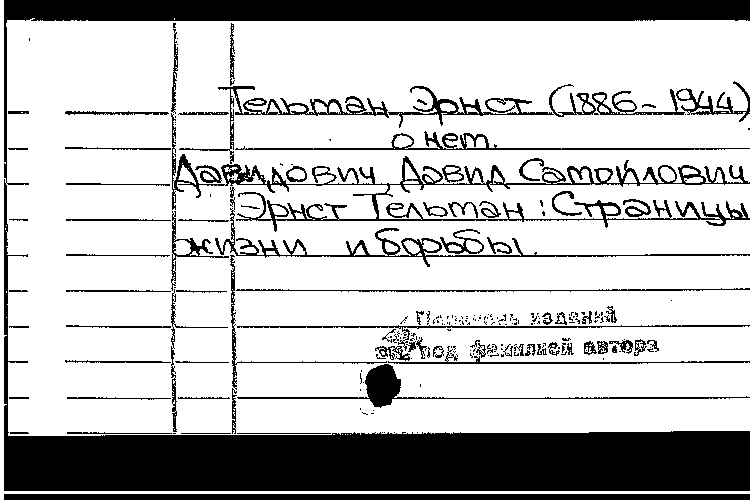 Тельман, Эрнст (1886-1944)
о нем.
Давидович, Давид Самойлович
Эрнст Тельман : Страницы
жизни и борьбы.
Перечень изданий
см. под фамилией автора